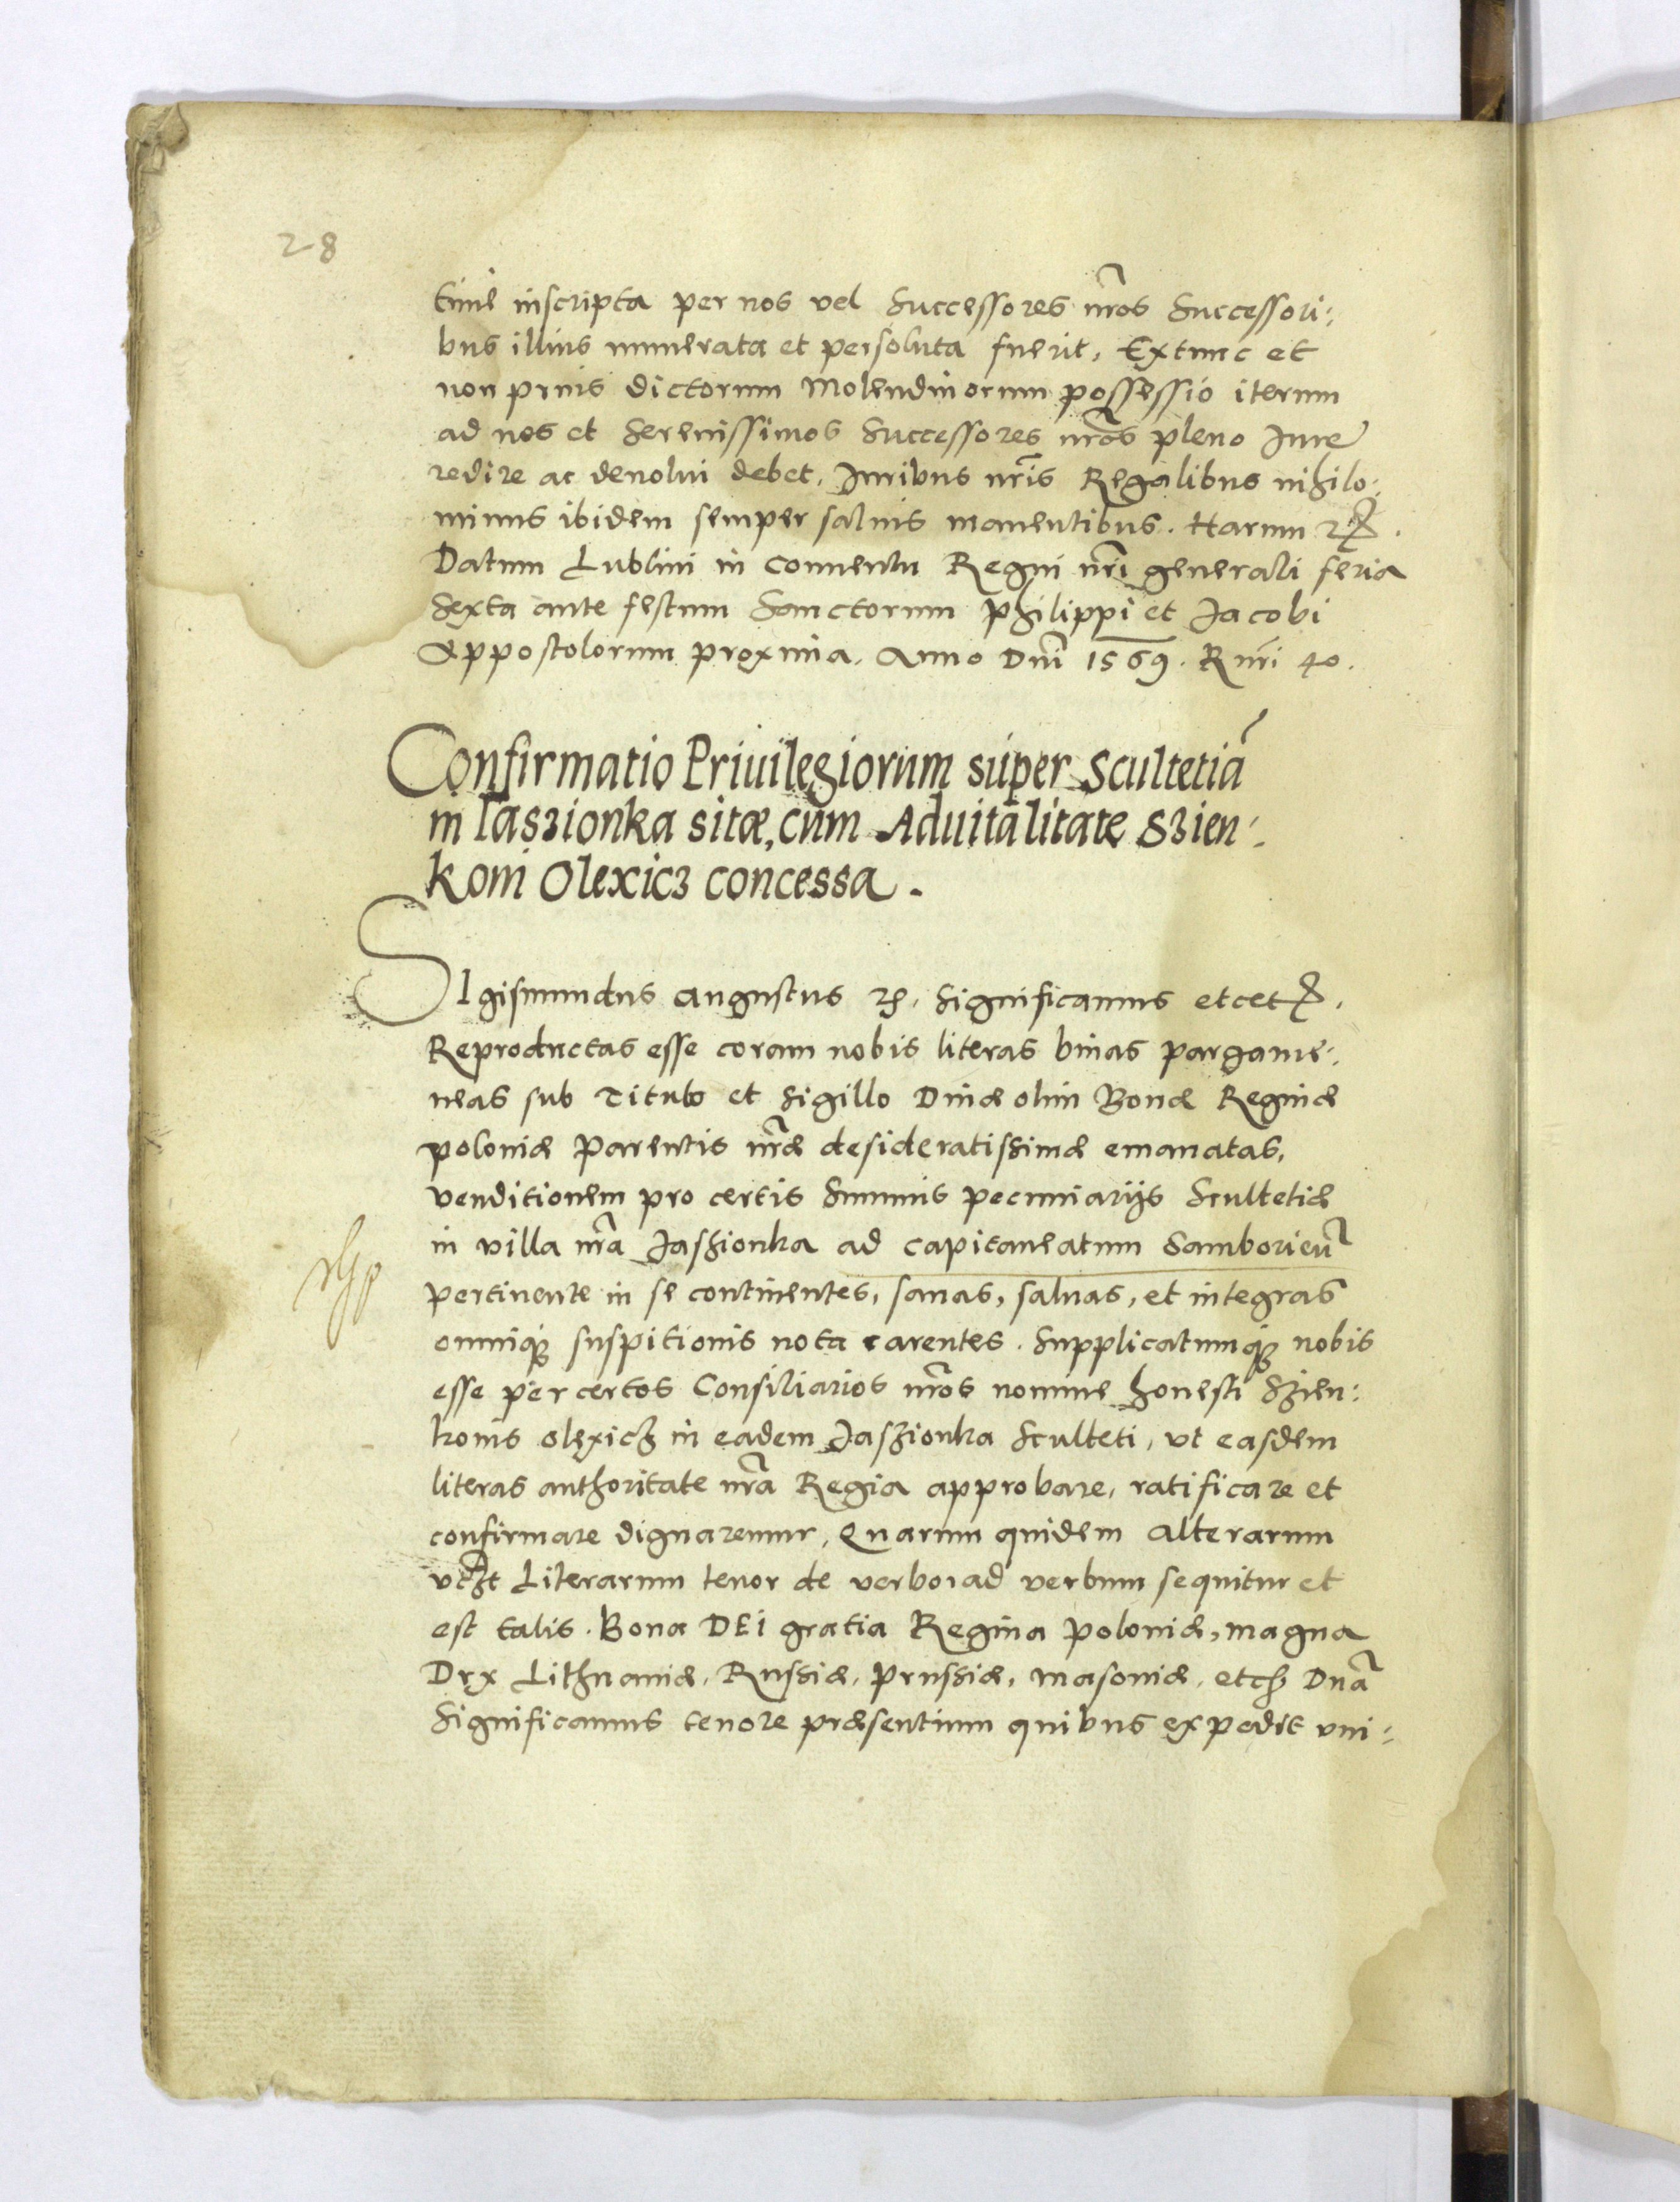 28
time inscripta per nos vel Successores nr̃os Successori:
bus illius numerata et persoluta fuerit, Extunc et
non prius dictorum Molendinorum possessio iterum
ad nos et Serenissimos Successores nr̃os pleno Iure
redire ac deuolui debet, Iuribus nr̃is Regalibus nihilo:
minus ibidem semper saluis manentibus. Harum
Datum Lublini in Conuentu Regni nr̃i generali feria
Sexta ante festum Sanctorum Philippi et Jacobi
Appostolorum proxima. Anno Dnĩ 1569. R nr̃i 40.
Confirmatio Priuilegiorum super Scultetiã
in Iaszionka sitæ, cum Aduitalitate Szien:
koni Olexicz concessa.
SIgismundus Augustus Significamus etcet
Reproductas esse coram nobis literas binas pargame:
neas sub Titulo et Sigillo Diuæ olim Bonæ Reginæ
Poloniæ Parentis nr̃æ desideratissimæ emanatas,
venditionem pro certis Summis pecuniarijs Scultetiæ
in villa nr̃a Jaszionka ad Capitaneatum Samborieñ
pertinente in se continentes, sanas, saluas, et integras
omniq̃ suspitionis nota carentes. Supplicatumq̃ nobis
esse per certos Consiliarios nr̃os nomine honesti Szien:
konis Olexicz in eadem Jaszionka Sculteti, vt easdem
literas authoritate nr̃a Regia approbare, ratificare et
confirmare dignaremur, Quarum quidem Alterarum
Literarum tenor de verbo ad verbum sequitur et
est talis. Bona DEI gratia Regina Poloniæ, magna
Dux Lithuaniæ, Russiæ, Prussiæ, Masouiæ, etc Dnã
Significamus tenore præsentium quibus expedit vni: